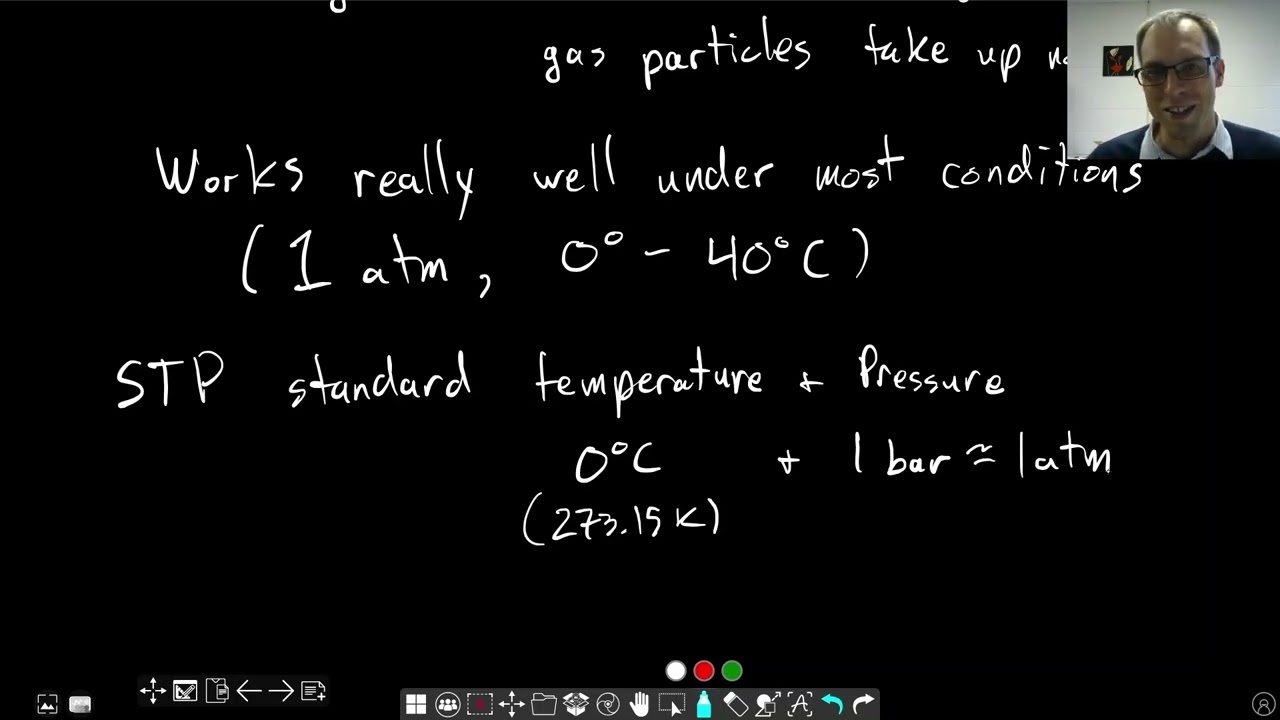 gas particles take up
Works really well under most conditions
(1 atm, 0° - 40°C)
STP standard temperature + Pressure
0°C + 1 bar ≈ 1 atm
(273.15 K)